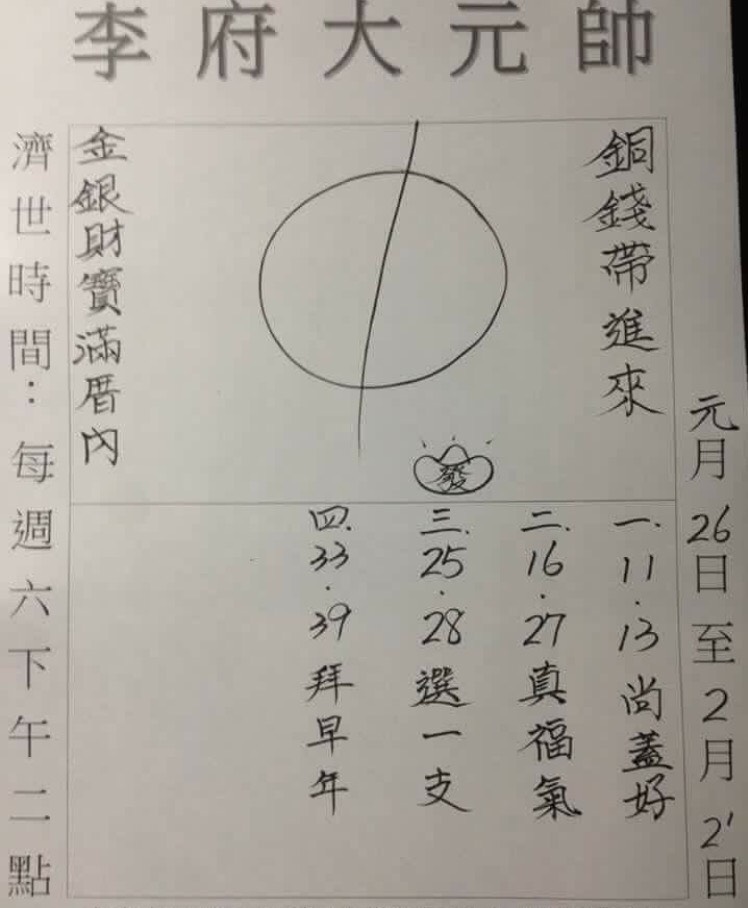 李府大元帥
元月26日至2月2日
銅錢帶進來
金銀財寶滿厝內
發
一.11.13尚蓋好
二.16.27真福氣
三.25.28選一支
四.33.39拜早年
濟世時間：每週六下午二點